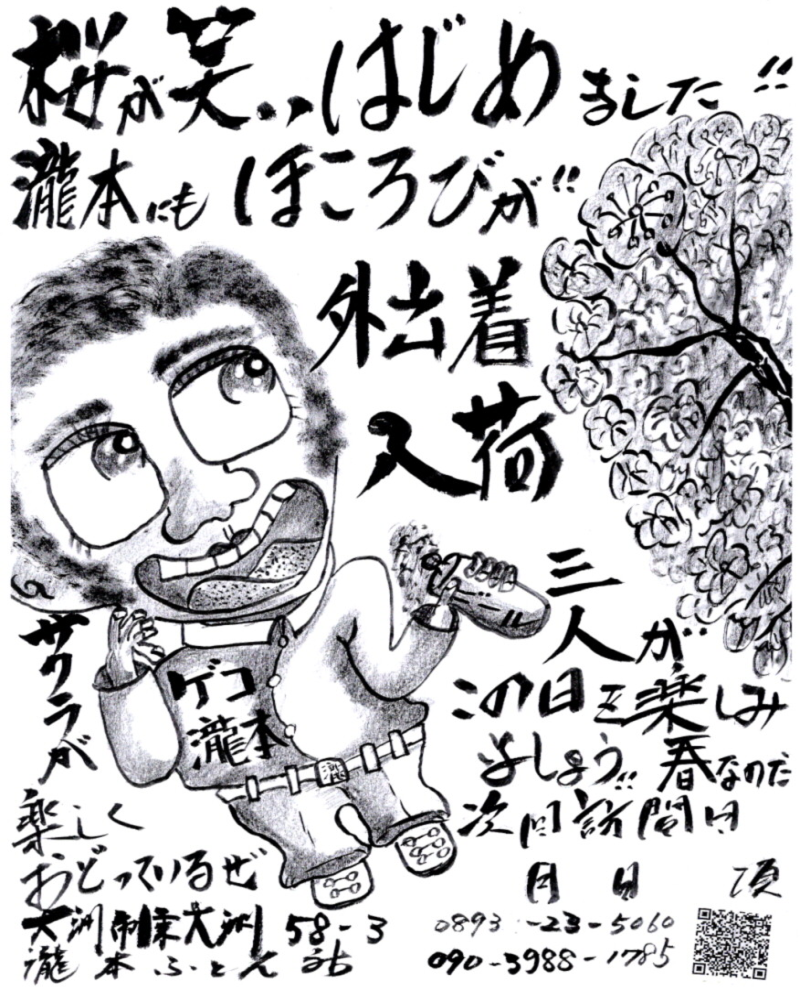 桜が笑いはじめました!!
瀧本にもほころびが!!
外出着
入荷
三
人が
この日を楽しみ
ましょう!! 春なのだ
次回訪問日
月 日 頃
サクラが
楽しく
おどっているぜ
ゲコ
瀧本
瀧
大洲市東大洲 58-3
瀧本ふとん店
0893-23-5060
090-3988-1785